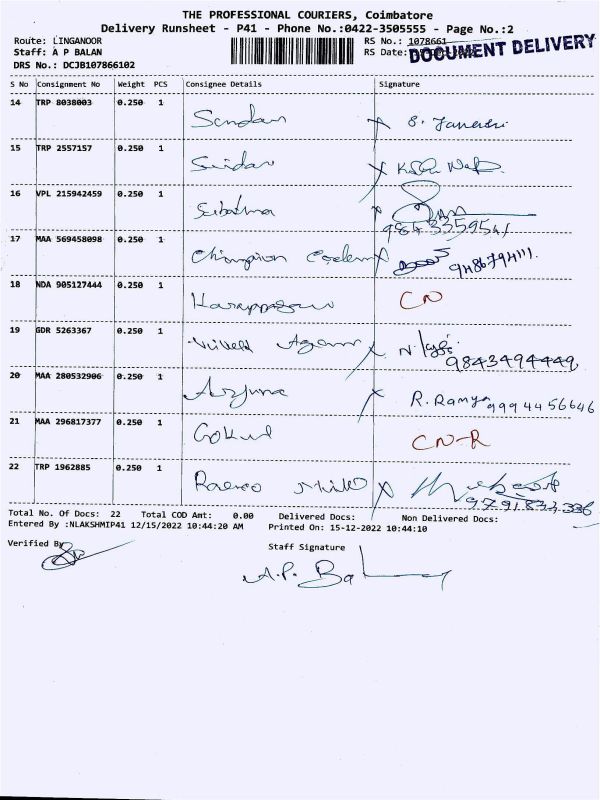 THE PROFESSIONAL COURIERS, Coimbatore
Delivery Runsheet - P41 - Phone No.:0422-3505555 - Page No.:2
Route: LINGANOOR RS No.: 1078661
Staff: A P BALAN RS Date:
DOCUMENT DELIVERY
DRS No.: DCJB107866102
S No Consignment No Weight PCS Consignee Details Signature
14 TRP 8038003 0.250 1
15 TRP 2557157 0.250 1
16 VPL 215942459 0.250 1
9843359541
17 MAA 569458098 0.250 1 Champion 9486794111.
18 NDA 905127444 0.250 1 CN
19 GDR 5263367 0.250 1
9843494449
20 MAA 280532906 0.250 1 Arjuna R. Ramya 9994456646
21 MAA 296817377 0.250 1 Gokul CN-R
22 TRP 1962885 0.250 1
9791833336
Total No. Of Docs: 22 Total COD Amt: 0.00 Delivered Docs: Non Delivered Docs:
Entered By :NLAKSHMIP41 12/15/2022 10:44:20 AM Printed On: 15-12-2022 10:44:10
Verified By Staff Signature
A.P. Bal